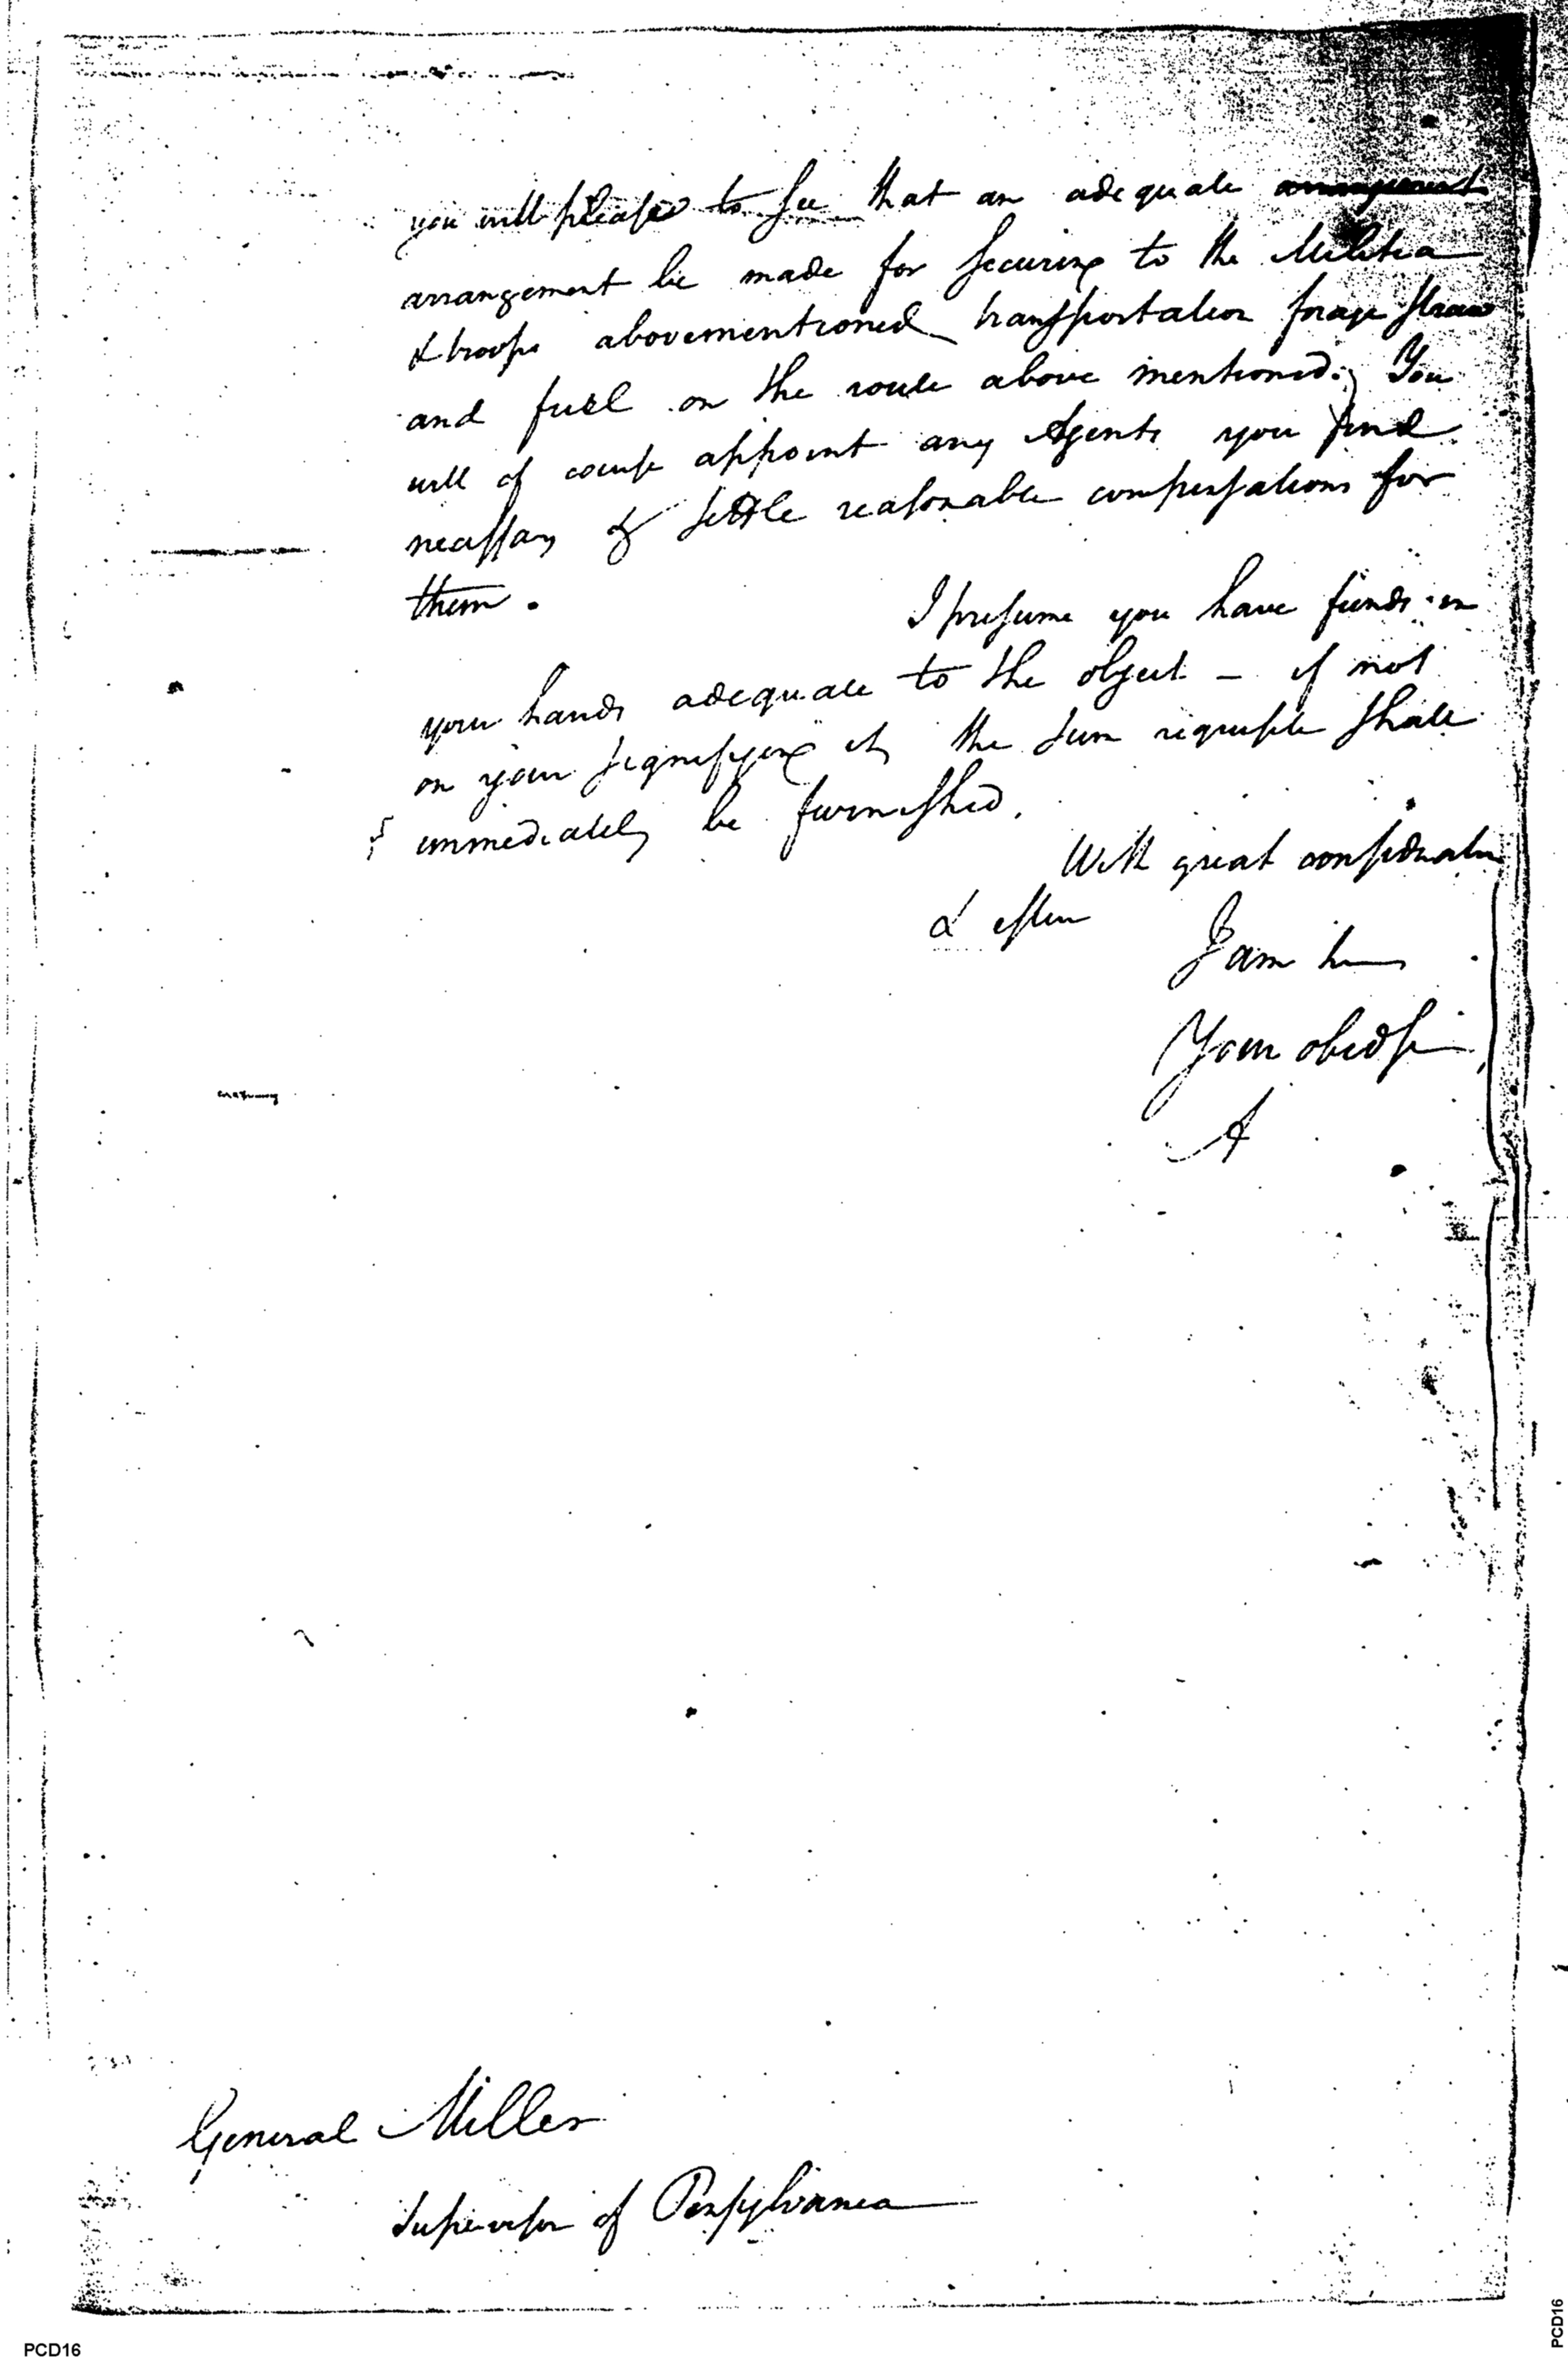 you will please to see that an adequate arrangement
arrangement be made for securing to the Militia
& troops abovementioned transportation forage straw
and fuel on the route above mentioned. You
will of course appoint any Agents you find
necessary & settle reasonable compensations for
them.
I presume you have funds in
your hands adequate to the object – if not
on your signifying it, the sum requisite shall
immediately be furnished.
With great consideration
& esteem
I am
Your obed
A
General Miller
Supervisor of Pensylvania
PCD16
PCD16